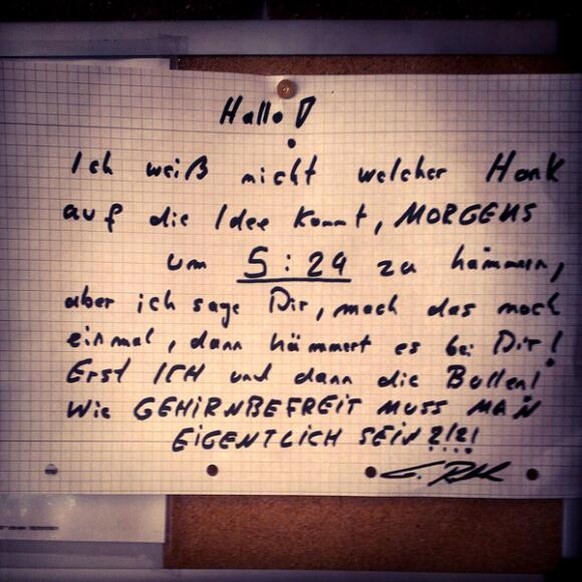 Hallo!
Ich weiß nicht welcher Honk
auf die Idee kommt, MORGENS
um 5:24 zu hämmern,
aber ich sage Dir, mach das noch
einmal, dann hämmert es bei Dir!
Erst ICH und dann die Bullen!
Wie GEHIRNBEFREIT MUSS MAN
EIGENTLICH SEIN?!?!